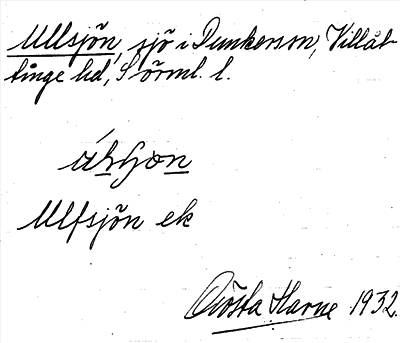 Ullsjön, sjö i Dunkerson, Villåt-
tinge hd, Sörml. l.
Ulfsjön ek
Gösta Harne 1932.